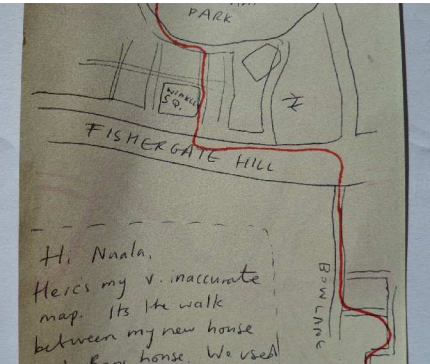 PARK
WINKLEY
SQ.
FISHERGATE HILL
BOW LANE
Hi Nuala,
Here's my v. inaccurate
map. Its the walk
between my new house
house. We used